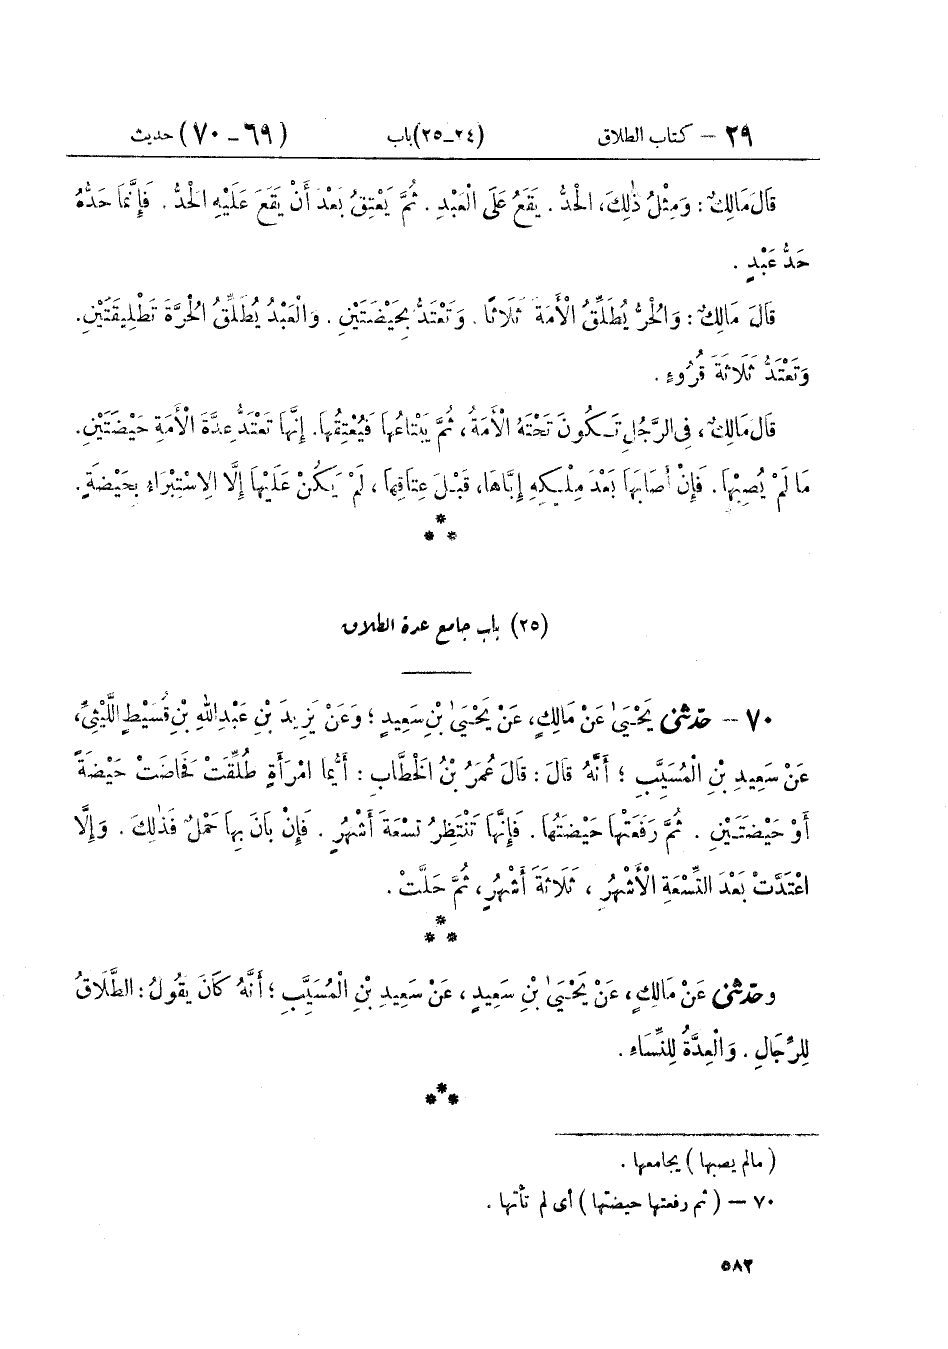 ٢٩ – كتاب الطلاق (٢٤ـ٢٥) باب (٦٩ – ٧٠) حديث
قَالَ مَالِكٌ: وَمِثْلُ ذٰلِكَ، الْحَدُّ. يَقَعُ عَلَى الْعَبْدِ. ثُمَّ يَعْتِقُ بَعْدَ أَنْ يَقَعَ عَلَيْهِ الْحَدُّ. فَإِنَّمَا حَدُّهُ
حَدُّ عَبْدٍ.
قَالَ مَالِكٌ: وَالْحُرُّ يُطَلِّقُ الْأَمَةَ ثَلَاثًا. وَتَعْتَدُّ بِحَيْضَتَيْنِ. وَالْعَبْدُ يُطَلِّقُ الْحُرَّةَ تَطْلِيقَتَيْنِ.
وَتَعْتَدُّ ثَلَاثَةَ قُرُوءٍ.
قَالَ مَالِكٌ، فِي الرَّجُلِ تَكُونَ تَحْتَهُ الْأَمَةُ، ثُمَّ يَبْتَاعُهَا فَيُعْتِقُهَا. إِنَّهَا تَعْتَدُّ عِدَّةَ الْأَمَةِ حَيْضَتَيْنِ.
مَا لَمْ يُصِبْهَا. فَإِنْ أَصَابَهَا بَعْدَ مِلْكِهِ إِيَّاهَا، قَبْلَ عِتَاقِهَا، لَمْ يَكُنْ عَلَيْهَا إِلَّا الِاسْتِبْرَاءِ بِحَيْضَةٍ.
*
* *
(٢٥) باب جامع عدة الطلاق
٧٠ – حدثنى يَحْيَىٰ عَنْ مَالِكٍ، عَنْ يَحْيَىٰ بْنِ سَعِيدٍ؛ وَعَنْ يَزِيدَ بْنِ عَبْدِ اللهِ بْنِ قُسَيْطٍ اللَّيْثِيِّ،
عَنْ سَعِيدِ بْنِ الْمُسَيَّبِ؛ أَنَّهُ قَالَ: قَالَ عُمَرُ بْنُ الْخَطَّابِ: أَيُّمَا امْرَأَةٍ طُلِّقَتْ فَحَاضَتْ حَيْضَةً
أَوْ حَيْضَتَيْنِ. ثُمَّ رَفَعَتْهَا حَيْضَتُهَا. فَإِنَّهَا تَنْتَظِرُ تِسْعَةَ أَشْهُرٍ. فَإِنْ بَانَ بِهَا حَمْلٌ فَذٰلِكَ. وَإِلَّا
اعْتَدَّتْ بَعْدَ التِّسْعَةِ الْأَشْهُرِ، ثَلَاثَةَ أَشْهُرٍ، ثُمَّ حَلَّتْ.
*
* *
وحدثنى عَنْ مَالِكٍ، عَنْ يَحْيَىٰ بْنِ سَعِيدٍ، عَنْ سَعِيدِ بْنِ الْمُسَيَّبِ؛ أَنَّهُ كَانَ يَقُولُ: الطَّلَاقُ
لِلرِّجَالِ. وَالْعِدَّةُ لِلنِّسَاءِ.
*
* *
(مالم يصبها) يجامعها.
٧٠ – (ثم رفعتها حيضتها) أى لم تأتها.
٥٨٢